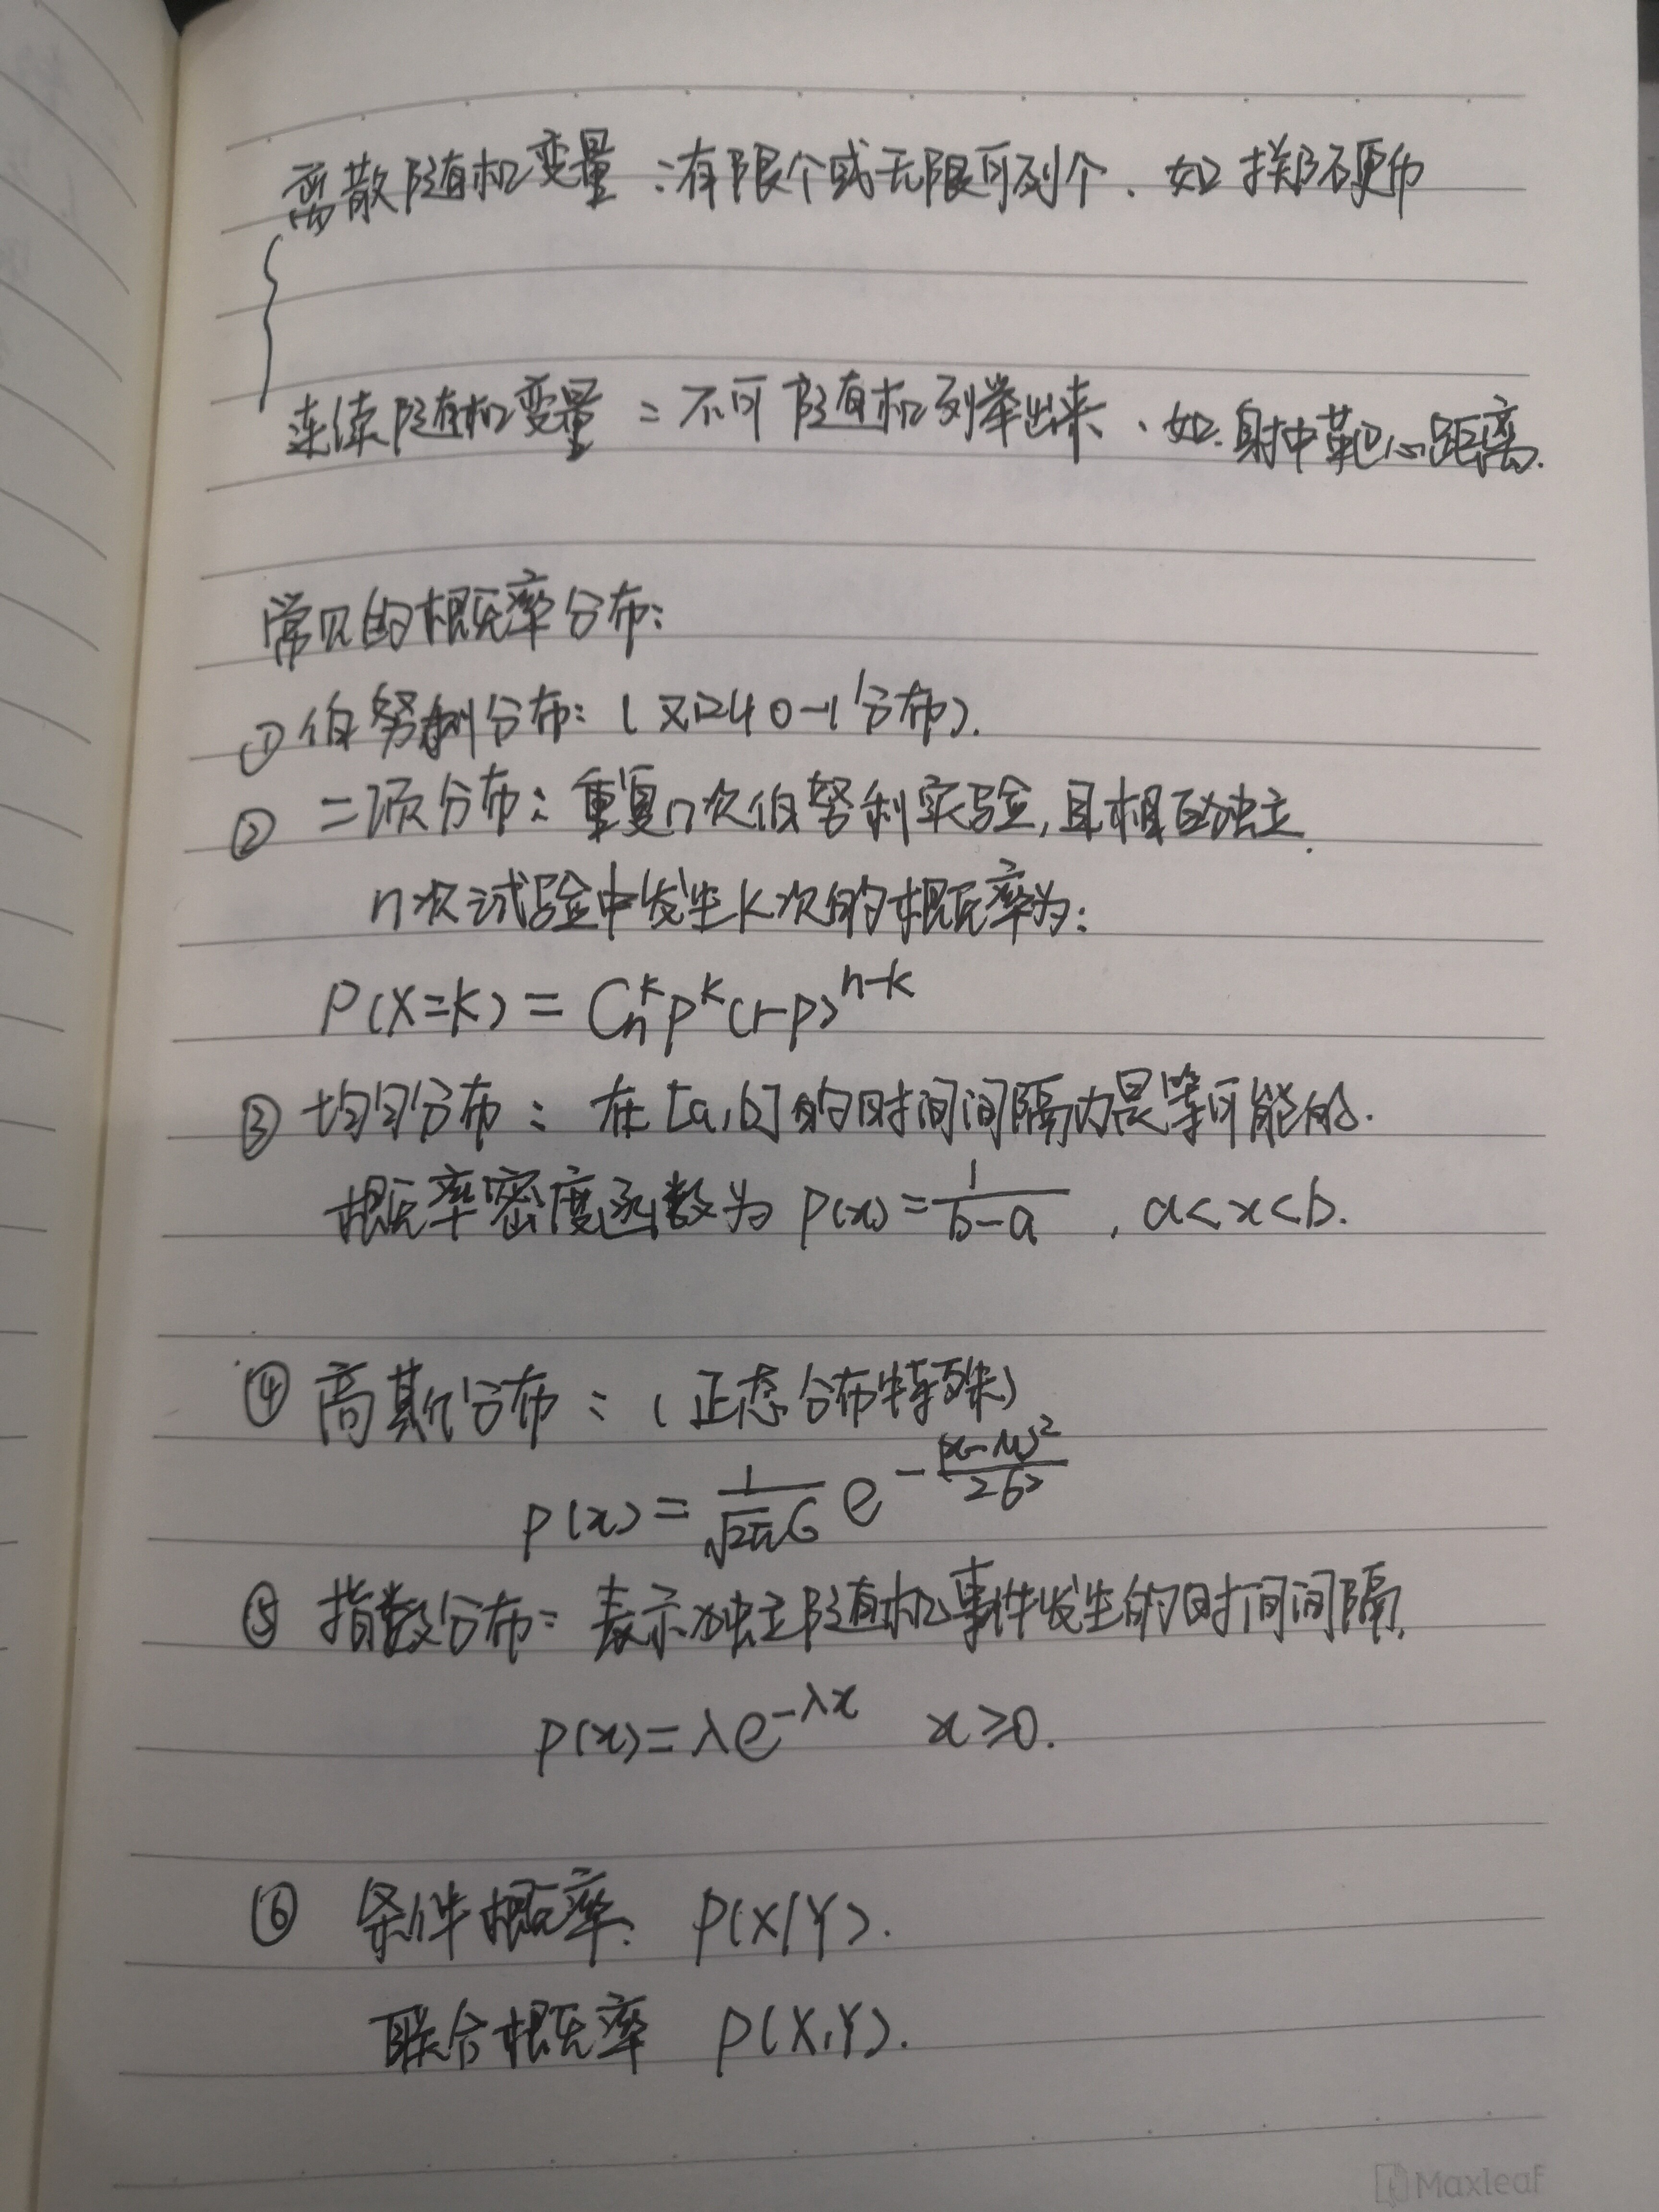 离散随机变量：有限个或无限可列个. 如掷硬币
连续随机变量：不可随机列举出来、如.射中靶心距离.
常见的概率分布：
① 伯努利分布：（又叫0-1分布）.
② 二项分布：重复n次伯努利实验,且相互独立.
n次试验中发生K次的概率为：
P(X=K) = C_n^k p^k (1-p)^{n-k}
③ 均匀分布：在[a,b]的时间间隔内是等可能的.
概率密度函数为 P(x)=\frac{1}{b-a}, a<x<b.
④ 高斯分布：（正态分布特殊）
P(x)=\frac{1}{\sqrt{2π}σ} e^{-\frac{(x-μ)^2}{2σ^2}}
⑤ 指数分布：表示独立随机事件发生的时间间隔.
P(x)=λe^{-λx} x≥0.
⑥ 条件概率: P(X|Y).
联合概率 P(X,Y).
Maxleaf